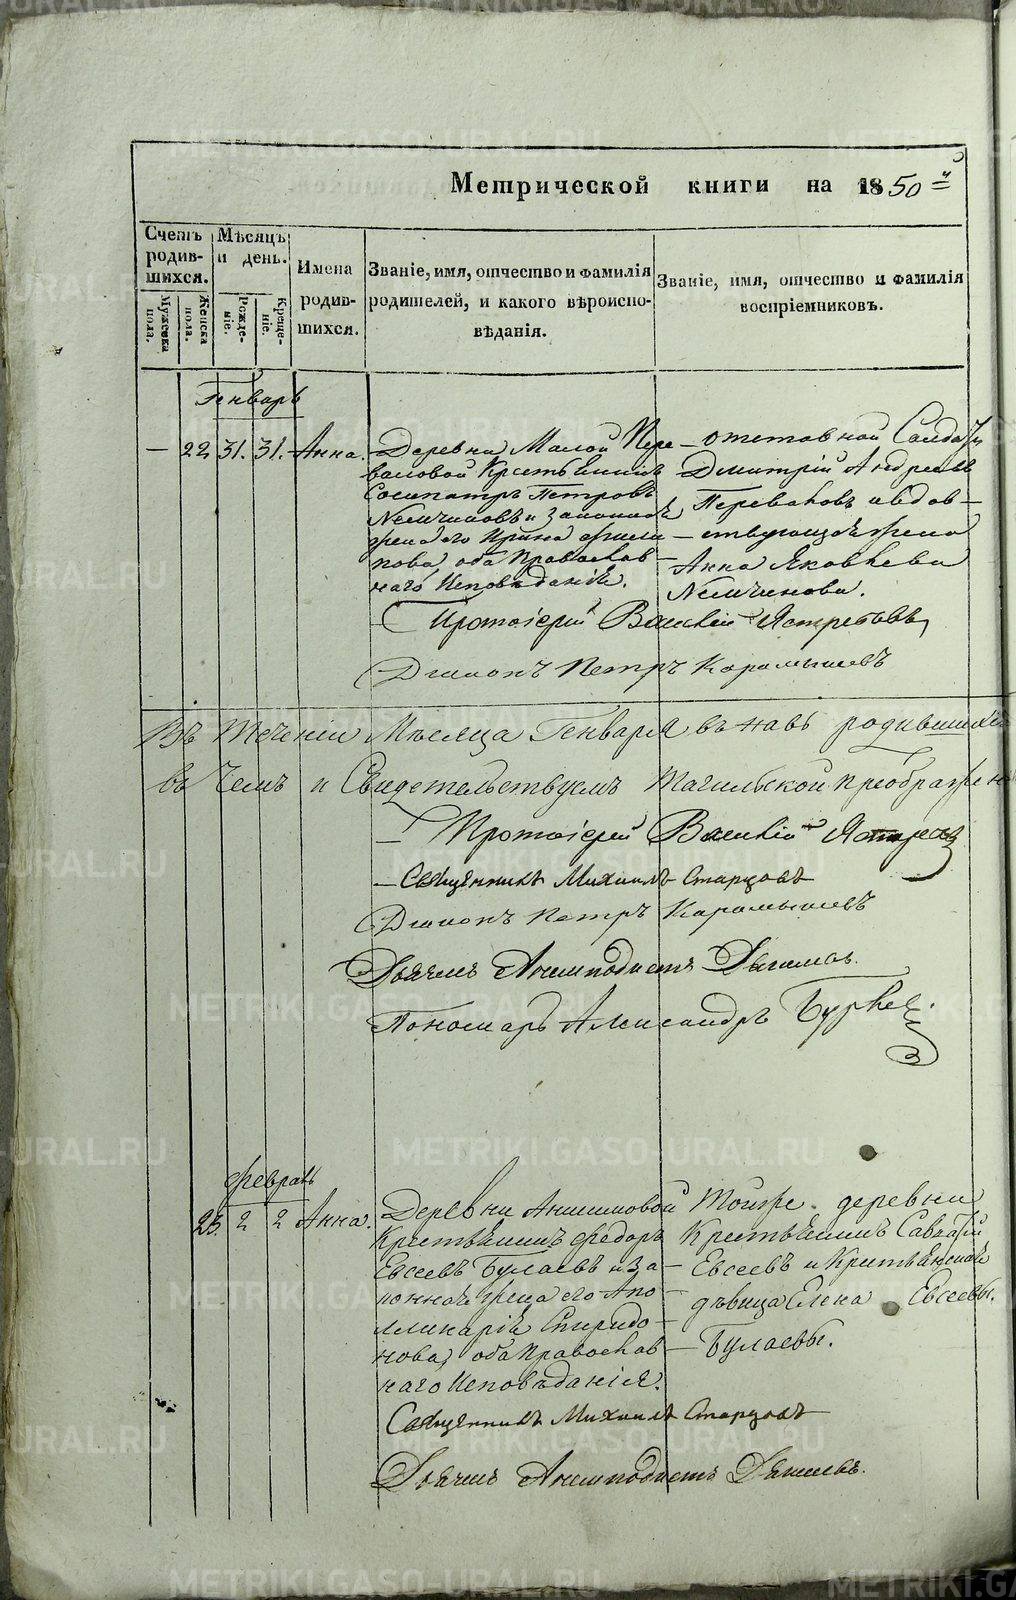 Метрической книги на 1850й
Счетъ родив-шихся.
Мужеска пола.
Женска пола.
Мѣсяцъ и день.
Рожде-ніе.
Креще-ніе.
Имена родив-шихся.
Званіе, имя, отчество и фамилія
родителей, и какого вѣроиспо-
вѣданія.
Званіе, имя, отчество и фамилія
воспріемниковъ.
Генварь
— 22 31. 31. Анна.
Деревни Малой Пере-
валовой Крестьянинъ
Сосипатръ Петровъ
Немчиновъ и законная
жена его Ирина Фили
пова, оба Православ-
наго Исповѣданія.
отставной Солдатъ
Дмитрій Андреевъ
Переваловъ и вдов-
ствующая жена
Анна Яковлева
Немчинова.
Протоіерей Василій Ястребовъ
Діаконъ Петръ Карамышевъ
Въ теченіи Мѣсяца Генваря въ навѣ родившихся
въ чемъ и Свидетельствуемъ Тагильской Преображен
Протоіерей Василій Ястребовъ
Священникъ Михаилъ Старцовъ
Діаконъ Петръ Карамышевъ
Дьячекъ Анемподистъ
Пономарь Александръ
Февраль
23. 2 2 Анна.
Деревни Анисимовой
Крестьянинъ Федоръ
Евсеевъ Булаевъ и за
конная жена его Апо
линарія Спиридо-
нова, оба Православ-
наго Исповѣданія.
Тойже деревни
Крестьянинъ Савватій
Евсеевъ и Крестьянская
дѣвица Елена Евсеевы.
Булаевы.
Священникъ Михаилъ Старцовъ
Дьячекъ Анемподистъ
METRIKI.GASO-URAL.RU